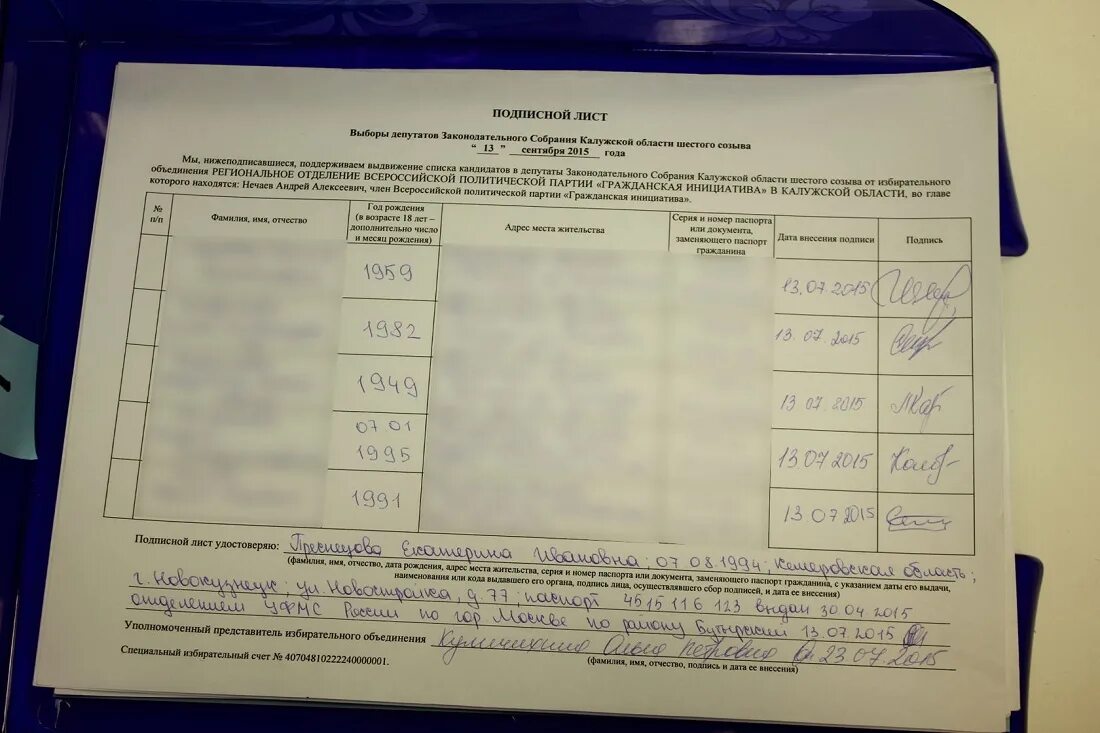 ПОДПИСНОЙ ЛИСТ
Выборы депутатов Законодательного Собрания Калужской области шестого созыва
“ 13 ” сентября 2015 года
Мы, нижеподписавшиеся, поддерживаем выдвижение списка кандидатов в депутаты Законодательного Собрания Калужской области шестого созыва от избирательного
объединения РЕГИОНАЛЬНОЕ ОТДЕЛЕНИЕ ВСЕРОССИЙСКОЙ ПОЛИТИЧЕСКОЙ ПАРТИИ «ГРАЖДАНСКАЯ ИНИЦИАТИВА» В КАЛУЖСКОЙ ОБЛАСТИ, во главе
которого находятся: Нечаев Андрей Алексеевич, член Всероссийской политической партии «Гражданская инициатива».
№
п/п
Фамилия, имя, отчество
Год рождения
(в возрасте 18 лет –
дополнительно число
и месяц рождения)
Адрес места жительства
Серия и номер паспорта
или документа,
заменяющего паспорт
гражданина
Дата внесения подписи
Подпись
1959
13.07.2015
1982
13.07.2015
1949
13.07.2015
07 01
1995
13.07.2015
1991
13.07.2015
Подписной лист удостоверяю: Екатерина Ивановна; 07.08.1994; Кемеровская область;
(фамилия, имя, отчество, дата рождения, адрес места жительства, серия и номер паспорта или документа, заменяющего паспорт гражданина, с указанием даты его выдачи,
наименования или кода выдавшего его органа, подпись лица, осуществлявшего сбор подписей, и дата ее внесения)
г. Новокузнецк; ул. Новостройка, д. 77; паспорт 4515 116 123 выдан 30.04.2015
отделением УФМС России по гор Москве по району Бутырский 13.07.2015
Уполномоченный представитель избирательного объединения Петровна 23.07.2015
(фамилия, имя, отчество, подпись и дата ее внесения)
Специальный избирательный счет № 40704810222240000001.